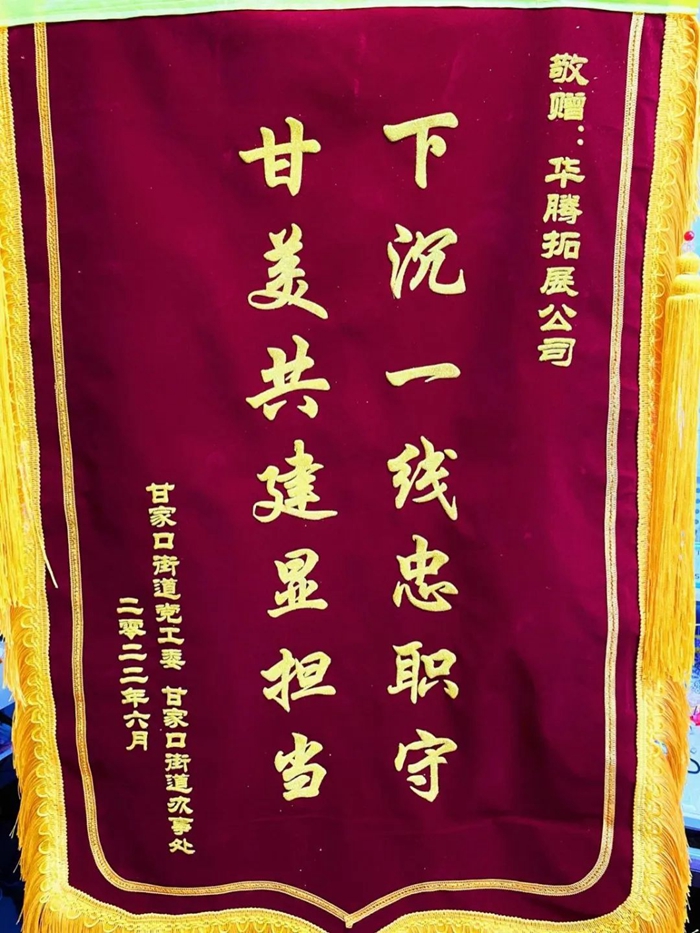 敬赠：华腾拓展公司
下沉一线忠职守
甘美共建显担当
甘家口街道党工委 甘家口街道办事处
二零二二年六月